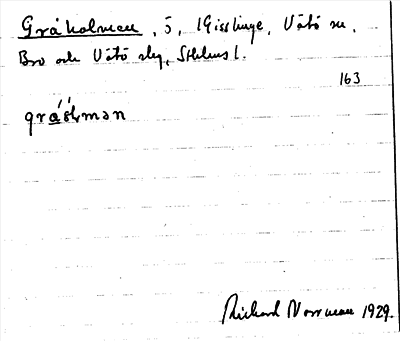 Gråholmen, ö, Gisslinge, Vätö sn,
Bro och Vätö skg, Sthlms l.
163
gråɧmən
Rickard Norrman 1929.